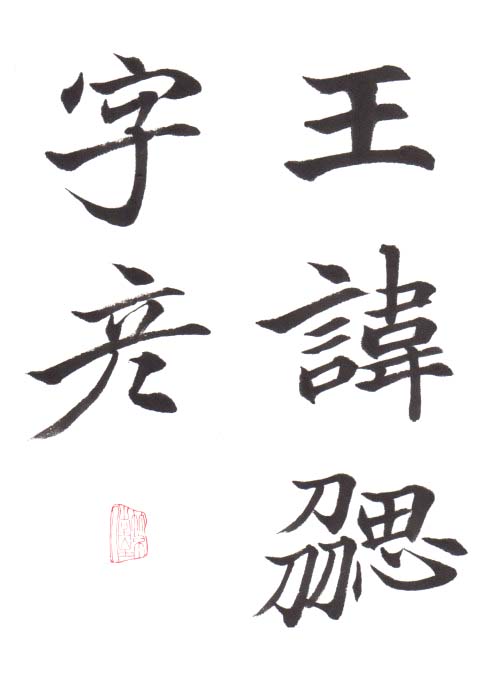 王諱勰
字彦